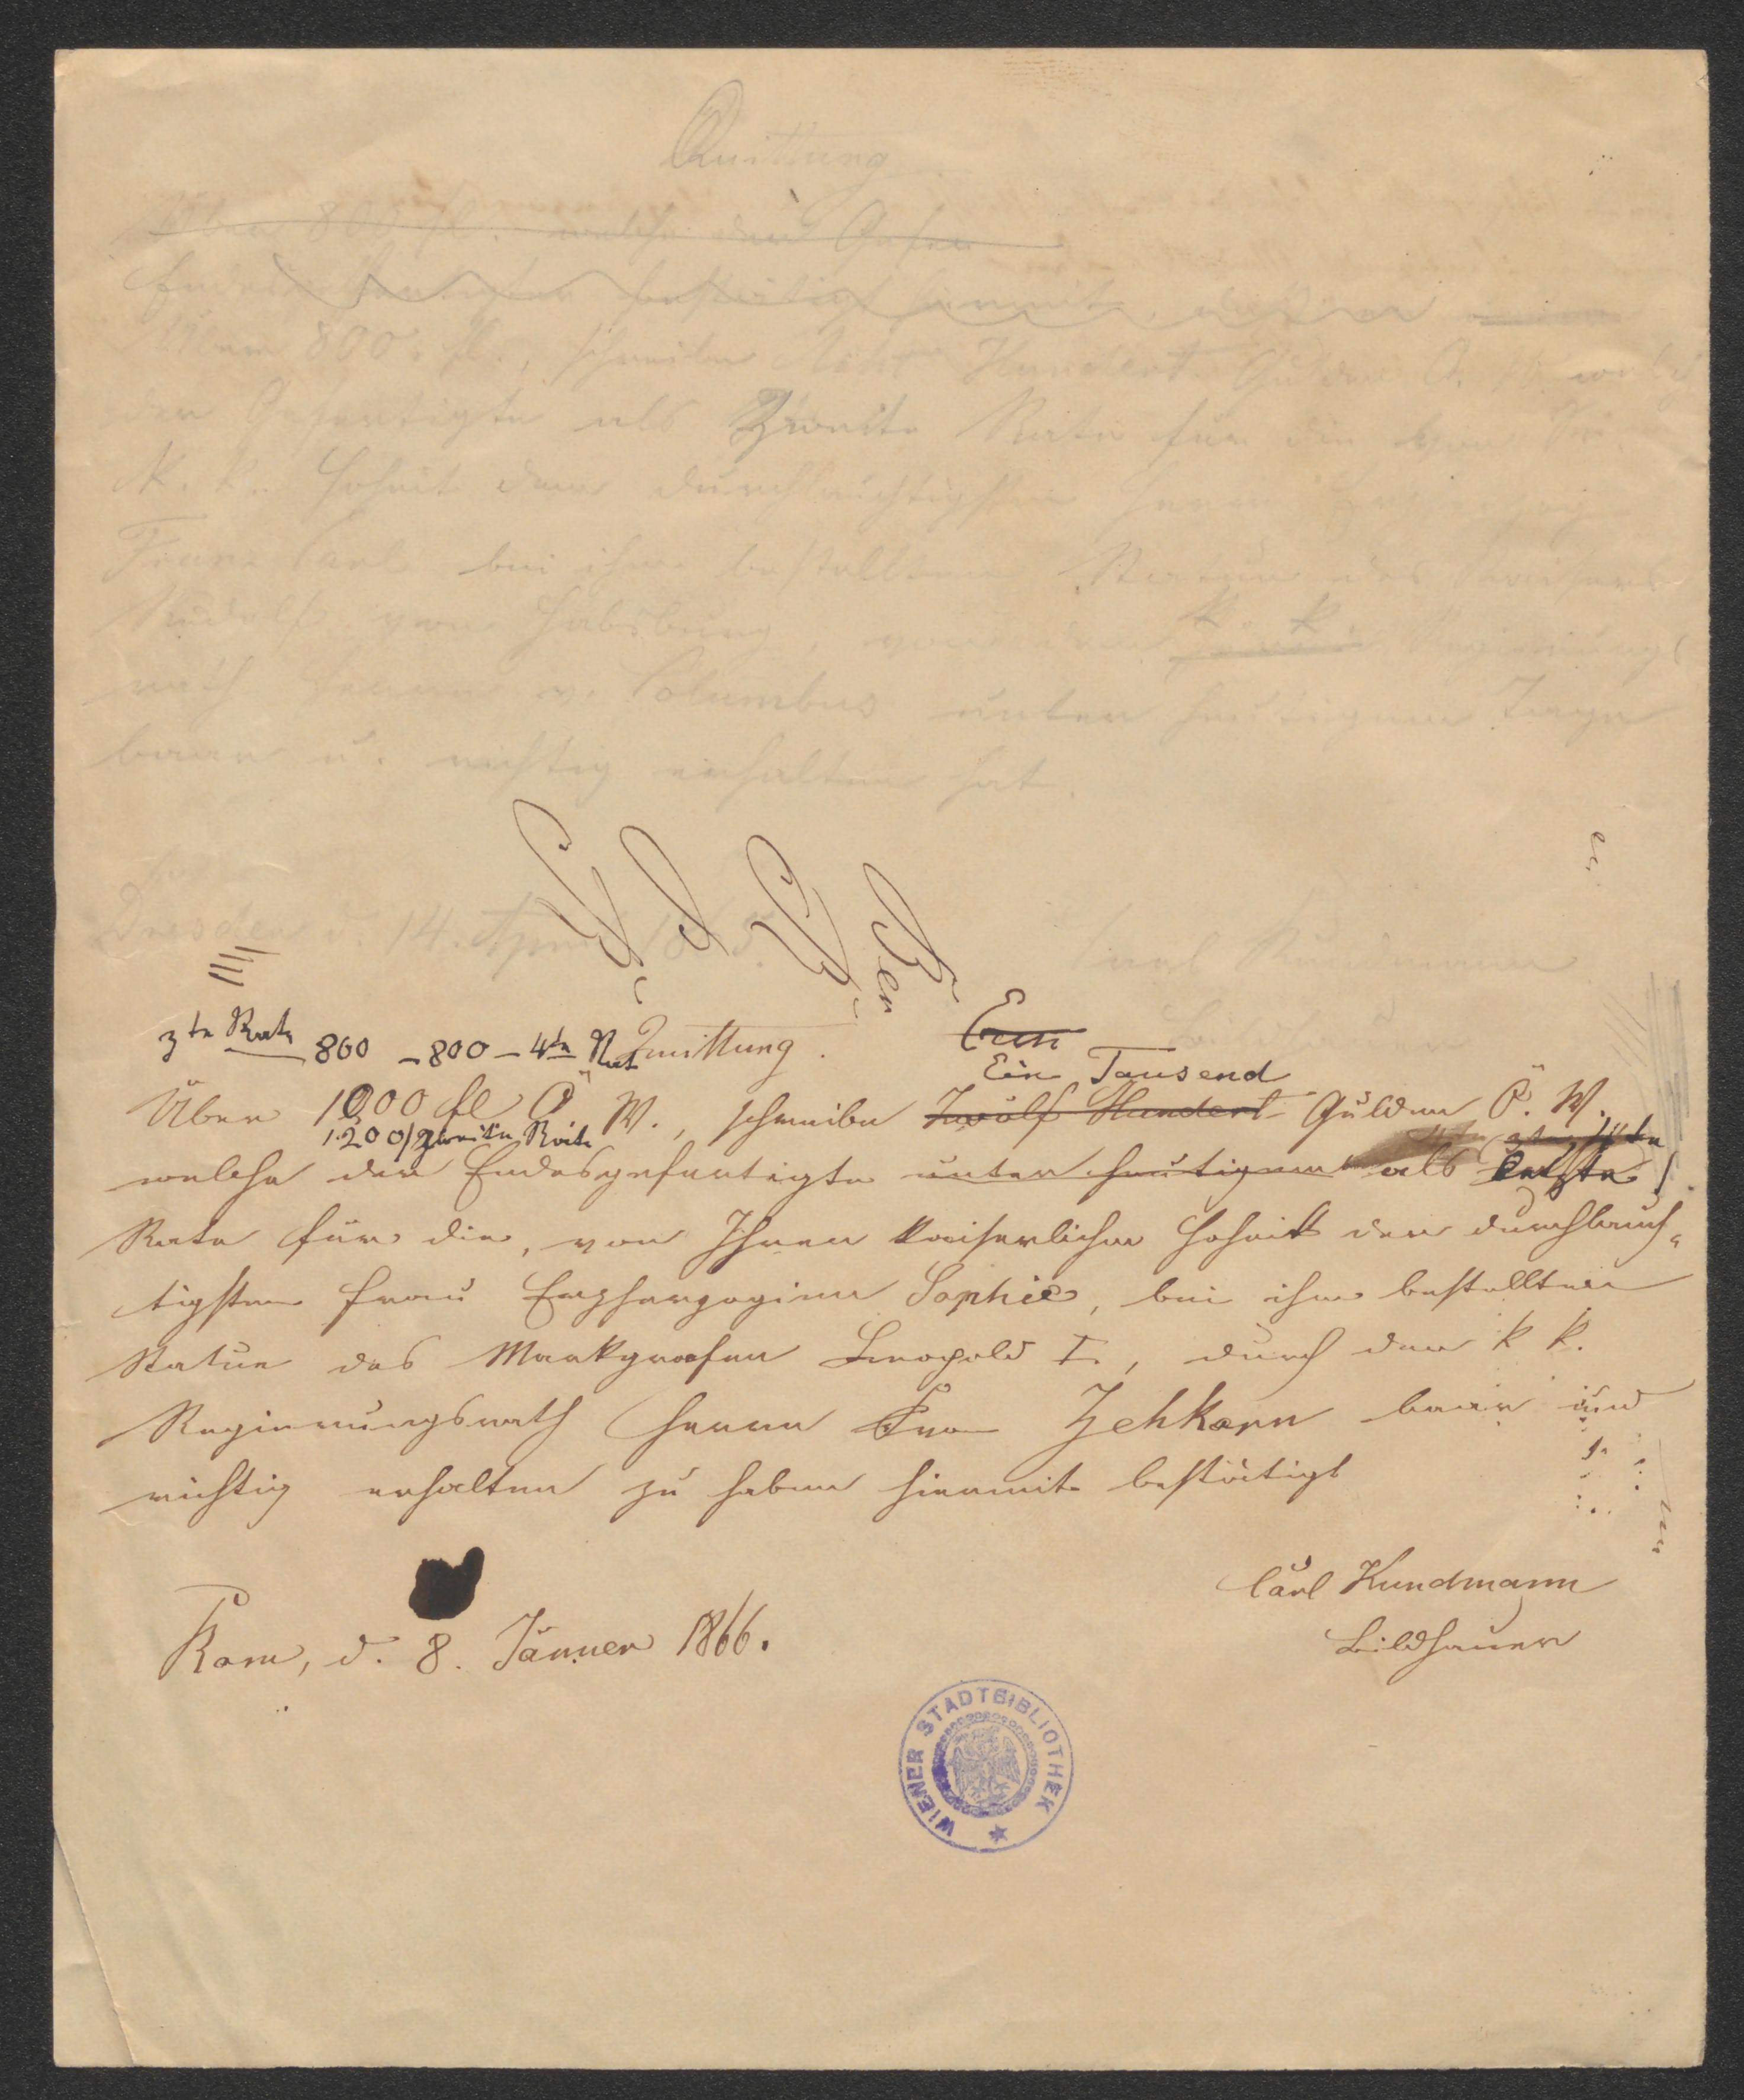 Quittung
Über 800 fl. welche der Gefer
Endesgefertigter bestätigt hiermit
Über 800. fl., schreibe Acht Hundert Gulden Ö. W. welche
der Gefertigte als Zweite Rate für die von Sr.
K. K. Hoheit dem durchlauchtigsten Herrn Erzherzog
Franz Carl bei ihm bestellten Statue des Kaisers
Rudolf von Habsburg, von dem k. k. Regierungs
rath Herrn v. Columbus unter heutigem Tage
baar u. richtig erhalten hat.
Dresden d. 14. April 1865.
Carl Kundmann
Bildhauer
3te Rate 800 – 800 – 4te Rat Quittung.
Ein Tausend
Über 1000 fl Ö W., schreibe Zwölf Hundert Gulden Ö. W.
1.200/zweite Rate
welche der Endesgefertigte unter heutigem als letzte
Rate für die, von Ihrer kaiserlichen Hoheit der durchlauch-
tigsten Frau Erzherzogin Sophie, bei ihm bestellten
Statue des Markgrafen Leopold I., durch den k k.
Regierungsrath Herrn von Zehkorn baar und
richtig erhalten zu haben hiermit bestätigt
Carl Kundmann
Rom, d. 8. Jänner 1866.
Bildhauer
WIENER STADTBIBLIOTHEK